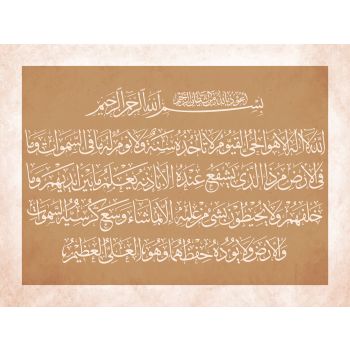 أعوذ بالله من الشيطان الرجيم
بسم الله الرحمن الرحيم
الله لا اله الا هو الحي القيوم لا تأخذه سنة ولا نوم له ما في السموات وما
في الارض من ذا الذي يشفع عنده الا باذنه يعلم ما بين ايديهم وما
خلفهم ولا يحيطون بشئ من علمه الا بما شاء وسع كرسيه السموات
والارض ولا يؤده حفظهما وهو العلي العظيم